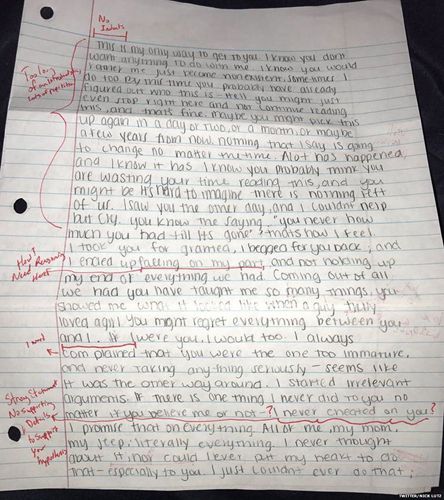 No
Indents
This is my only way to get to you. I know you don't
want anything to do with me. I know you would
rather me just become nonexistent. Sometimes I
do too. By this time you probably have already
figured out who this is - hell you might just
even stop right here and not continue reading
this, and that's fine. Maybe you might pick this
up again in a day or two, or a month, or maybe
a few years from now. Nothing that I say is going
to change no matter the time. Alot has happened,
and I know it has. I know you probably think you
are wasting your time reading this, and you
might be. It's hard to imagine there is nothing left
of us. I saw you the other day, and I couldn't help
but cry. You know the saying, "you never how
much you had till its gone" thats how I feel.
I took you for granted, I begged for you back, and
I ended up falling on my part, and not holding up
my end of everything we had. Coming out of all
we had you have taught me so many things, you
showed me what it looked like when a guy truly
loved a girl. You might regret everything between you
and I. If I were you, I would too. I always
complained that you were the one too immature,
and never taking anything seriously - seems like
it was the other way around. I started irrelevant
arguments. If there is one thing I never did to you no
matter if you believe me or not - ? I never cheated on you?
I promise that on everything. All of me, my mom,
my jeep; literally everything. I never thought
about it, nor could I ever put my heart to do
that - especially to you. I just couldn't ever do that;
Too long
of an introduction,
How?
Need Reasoning
Here
1 word
Strong Statement
No supporting
Details
to support
your
hypothesis
TWITTER/NICK LUTZ